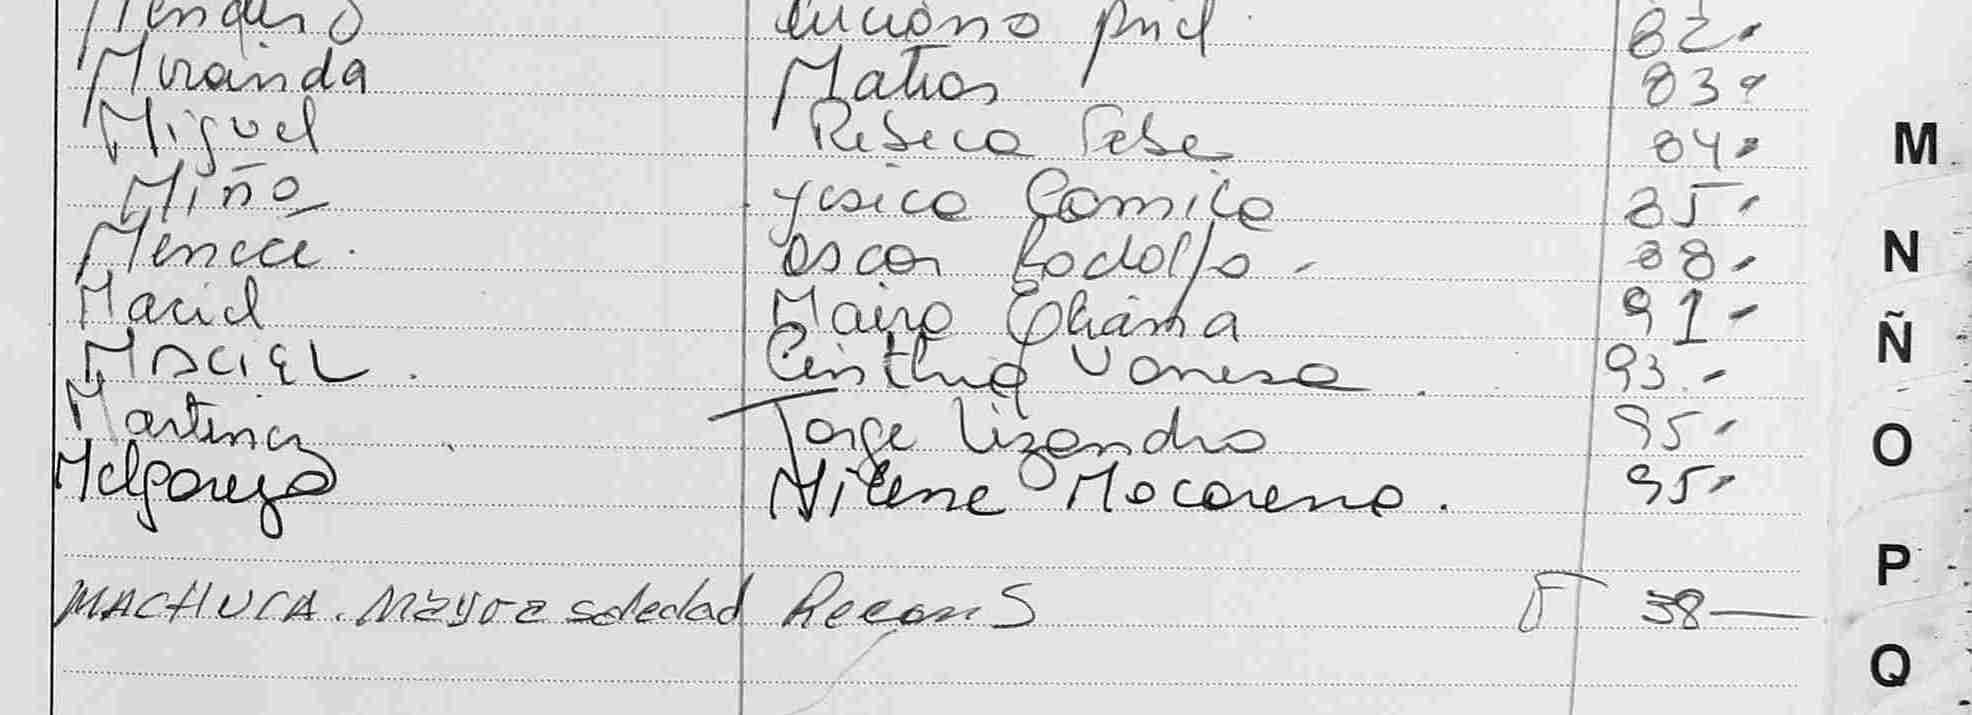 Luciano 82.
Miranda Matias 83.
Miguel Rebeca Febe 84.
Miño Yesica Camila 85.
Mencce. Oscar Rodolfo - 88.
Maciel Maira Eliana 91.
MaciEL. Cinthia Vanesa. 93.
Martinez Jorge Lizandro 95.
Melgarejo Milene Macarena. 95.
MACHUCA. Mayra Soledad Recon S F 38
M
N
Ñ
O
P
Q